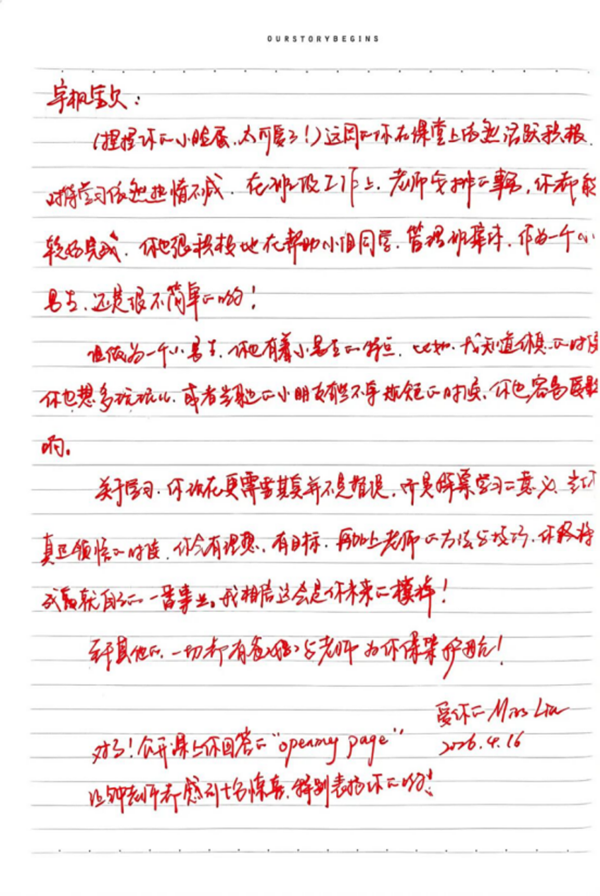 OURSTORYBEGINS
宇桐宝贝：
（捏捏你的小脸蛋，太可爱了！）这周的你在课堂上依然活跃积极，
对待学习依然热情不减，在班级工作上，老师安排的事情，你都能
较好完成，你也很积极地在帮助小组同学，管理班集体，作为一个小
男生，还是很不简单的哟！
但做为一个小男生，你也有着小男生的特点，比如，我知道的时候
你也想多玩玩儿，或者当身边的小朋友有些不守规矩的时候，你也容易受影
响。
关于学习，你现在更需要其实并不是错误，而是探索学习的意义，当你
真正领悟的时候，你会有理想，有目标，再加上老师的方法与技巧，你终将
成就自己的一番事业，我相信这会是你未来的模样！
至于其他的，一切都有爸妈与老师为你保驾护航！
爱你的 Miss Liu
2026.4.16
对了！公开课上你回答的“opening page”
让钟老师都感到十分惊喜，特别表扬你的哟！